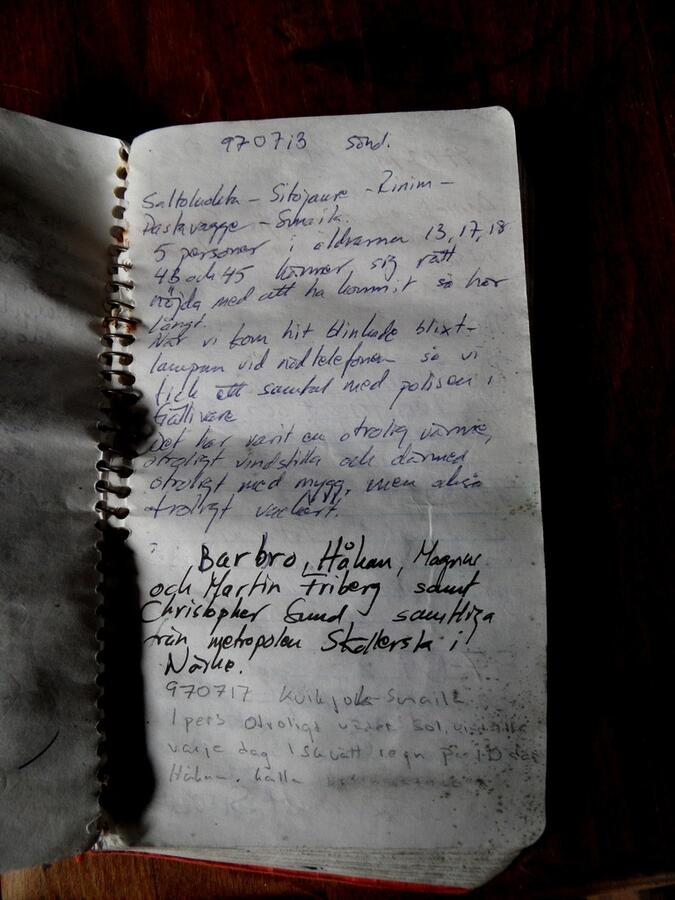 970713 sönd.
Saltoluokta - Sitojaure - Rinim -
Pastavagge - Smaila.
5 personer i åldrarna 13, 17, 18
43 och 45 känner sig rätt
nöjda med att ha kommit så här
långt.
När vi kom hit blinkade blixt-
lampan vid nödtelefonen så vi
fick ett samtal med polisen i
Gällivare
Det har varit en otrolig värme,
otroligt vindstilla och därmed
otroligt med mygg, men också
otroligt vackert.
Barbro, Håkan, Magnus
och Martin Friberg samt
Christopher samtliga
från metropolen i
Närke.
970717 Kvikkjokk - Smaila
1 pers otroligt väder sol,
varje dag 1 skvätt regn på 10